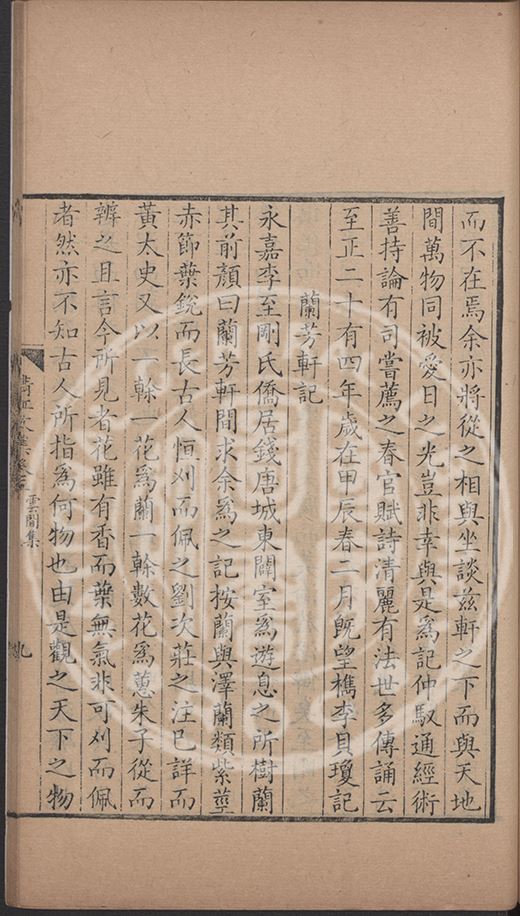 而不在焉余亦將從之相與坐談兹軒之下而與天地
間萬物同被愛日之光豈非幸與是爲記仲馭通經術
善持論有司嘗薦之春官賦詩清麗有法世多傳誦云
至正二十有四年歲在甲辰春二月旣望檇李貝瓊記
蘭芳軒記
永嘉李至剛氏僑居錢唐城東闢室爲遊息之所樹蘭
其前顏曰蘭芳軒間求余爲之記按蘭與澤蘭類紫莖
赤節葉銳而長古人恒刈而佩之劉次莊之注已詳而
黃太史又以一榦一花爲蘭一榦數花爲蕙朱子從而
辨之且言今所見者花雖有香而葉無氣非可刈而佩
者然亦不知古人所指爲何物也由是觀之天下之物
雲間集
九